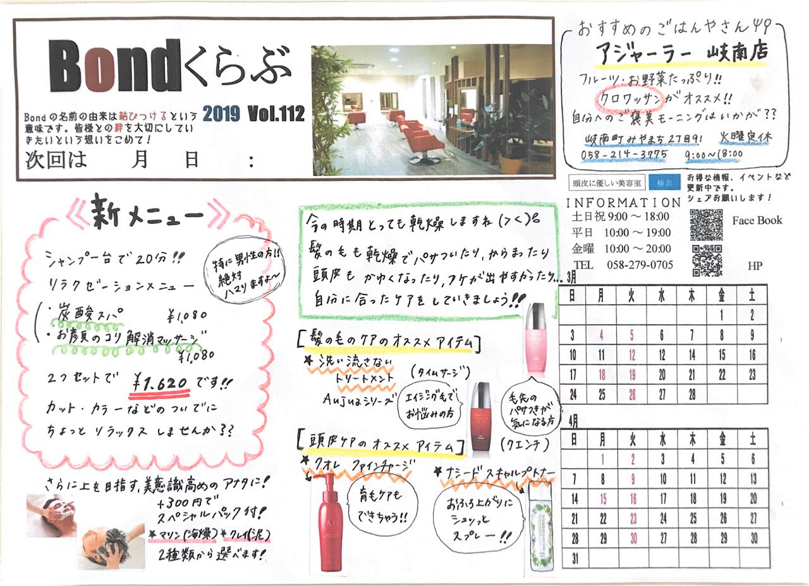 Bondくらぶ
Bondの名前の由来は結びつけるという
意味です。皆様との絆を大切にしてい
きたいという想いをこめて！
2019 Vol.112
次回は 月 日 :
おすすめのごはんやさん
アジャーラー 岐南店
フルーツ・お野菜たっぷり!!
クロワッサンがオススメ!!
自分へのご褒美モーニングはいかが??
岐南町みやまち2丁目91 火曜定休
058-214-3775 9:00~18:00
頭皮に優しい美容室 検索
お得な情報、イベントなど
更新中です。
シェアお願いします！
INFORMATION
土日祝 9:00 ~ 18:00
平日 10:00 ~ 19:00
金曜 10:00 ~ 20:00
TEL 058-279-0705
Face Book
HP
新メニュー
シャンプー台で20分!!
リラクゼーションメニュー
・炭酸スパ ¥1,080
・お顔のコリ解消マッサージ
¥1,080
2つセットで ¥1.620 です!!
カット・カラーなどのついでに
ちょっとリラックスしませんか??
特に男性の方!!
絶対
ハマりますよ~
さらに上を目指す、美意識高めのアナタに!
+300円で
スペシャルパック付!
★マリン(海藻) ★クレイ(泥)
2種類から選べます!
今の時期とっても乾燥しますね(>_<)。
髪の毛も乾燥でパサついたり、からまったり
頭皮もかゆくなったり、フケが出やすかったり...
自分に合ったケアをしていきましょう!!
[髪の毛のケアのオススメアイテム]
★洗い流さない
トリートメント
Aujuaシリーズ
(タイムサージ)
エイジング毛で
お悩みの方
毛先の
パサつきが
気になる方
(クエンチ)
[頭皮ケアのオススメアイテム]
★クオレ ファインチャージ
育毛ケアも
できちゃう!!
★ナミード スキャルプトナー
おふろ上がりに
シュッっと
スプレー!!
3月
日 月 火 水 木 金 土
1 2
3 4 5 6 7 8 9
10 11 12 13 14 15 16
17 18 19 20 21 22 23
24 25 26 27 28
4月
日 月 火 水 木 金 土
1 2 3 4 5 6
7 8 9 10 11 12 13
14 15 16 17 18 19 20
21 22 23 24 25 26 27
28 29 30 31